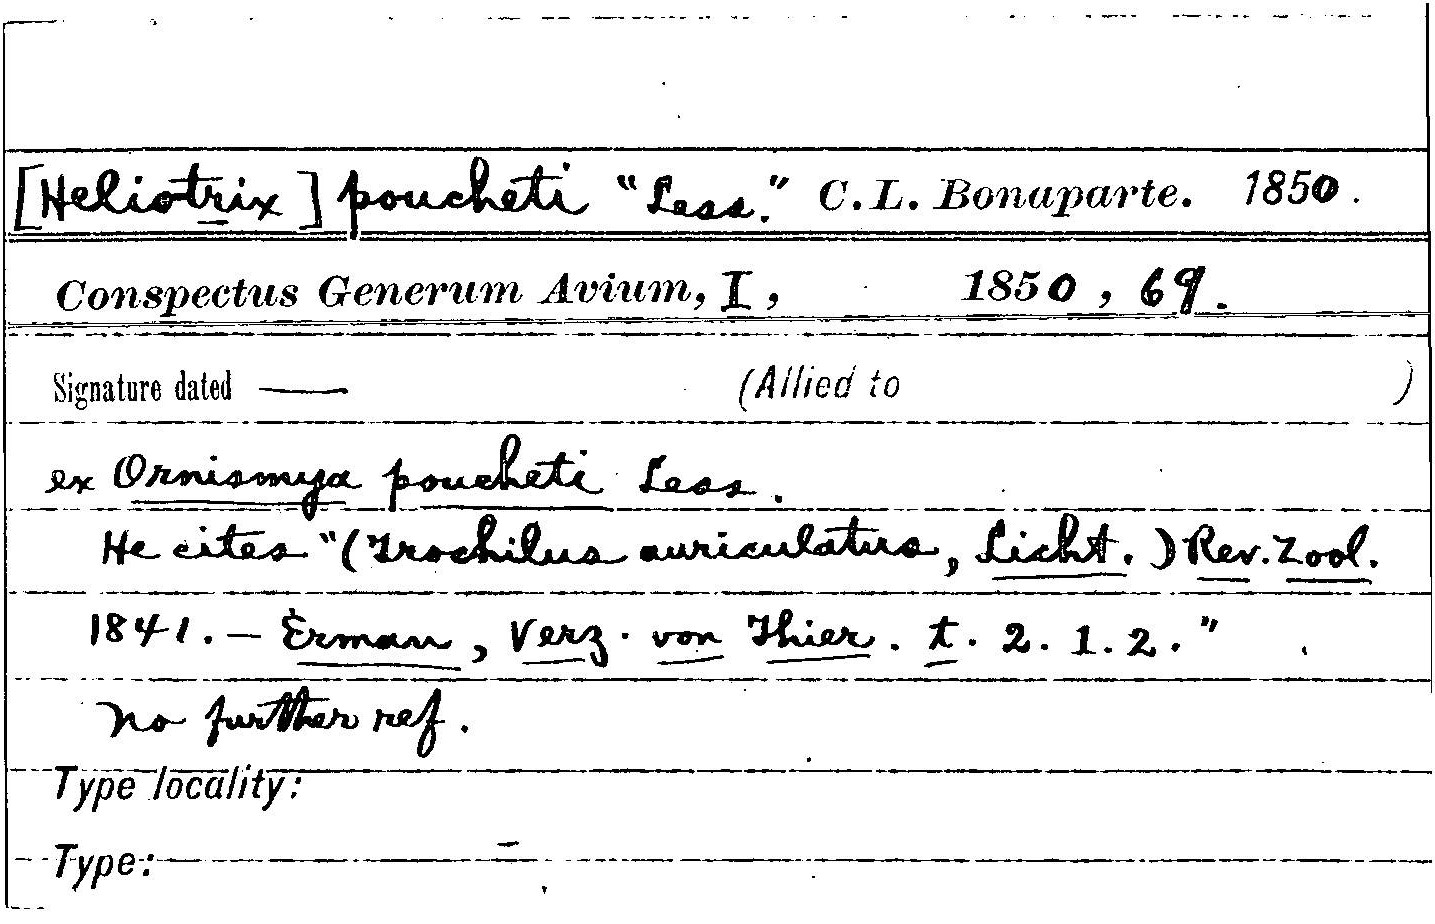 [Heliotrix] poucheti "Less." C. L. Bonaparte. 1850.
Conspectus Generum Avium, I, 1850, 69.
Signature dated — (Allied to )
ex Ornismya poucheti Less.
He cites "(Trochilus auriculatus, Licht.) Rev. Zool.
1841. — Erman, Verz. von Thier. t. 2. 1. 2."
No further ref.
Type locality:
Type: